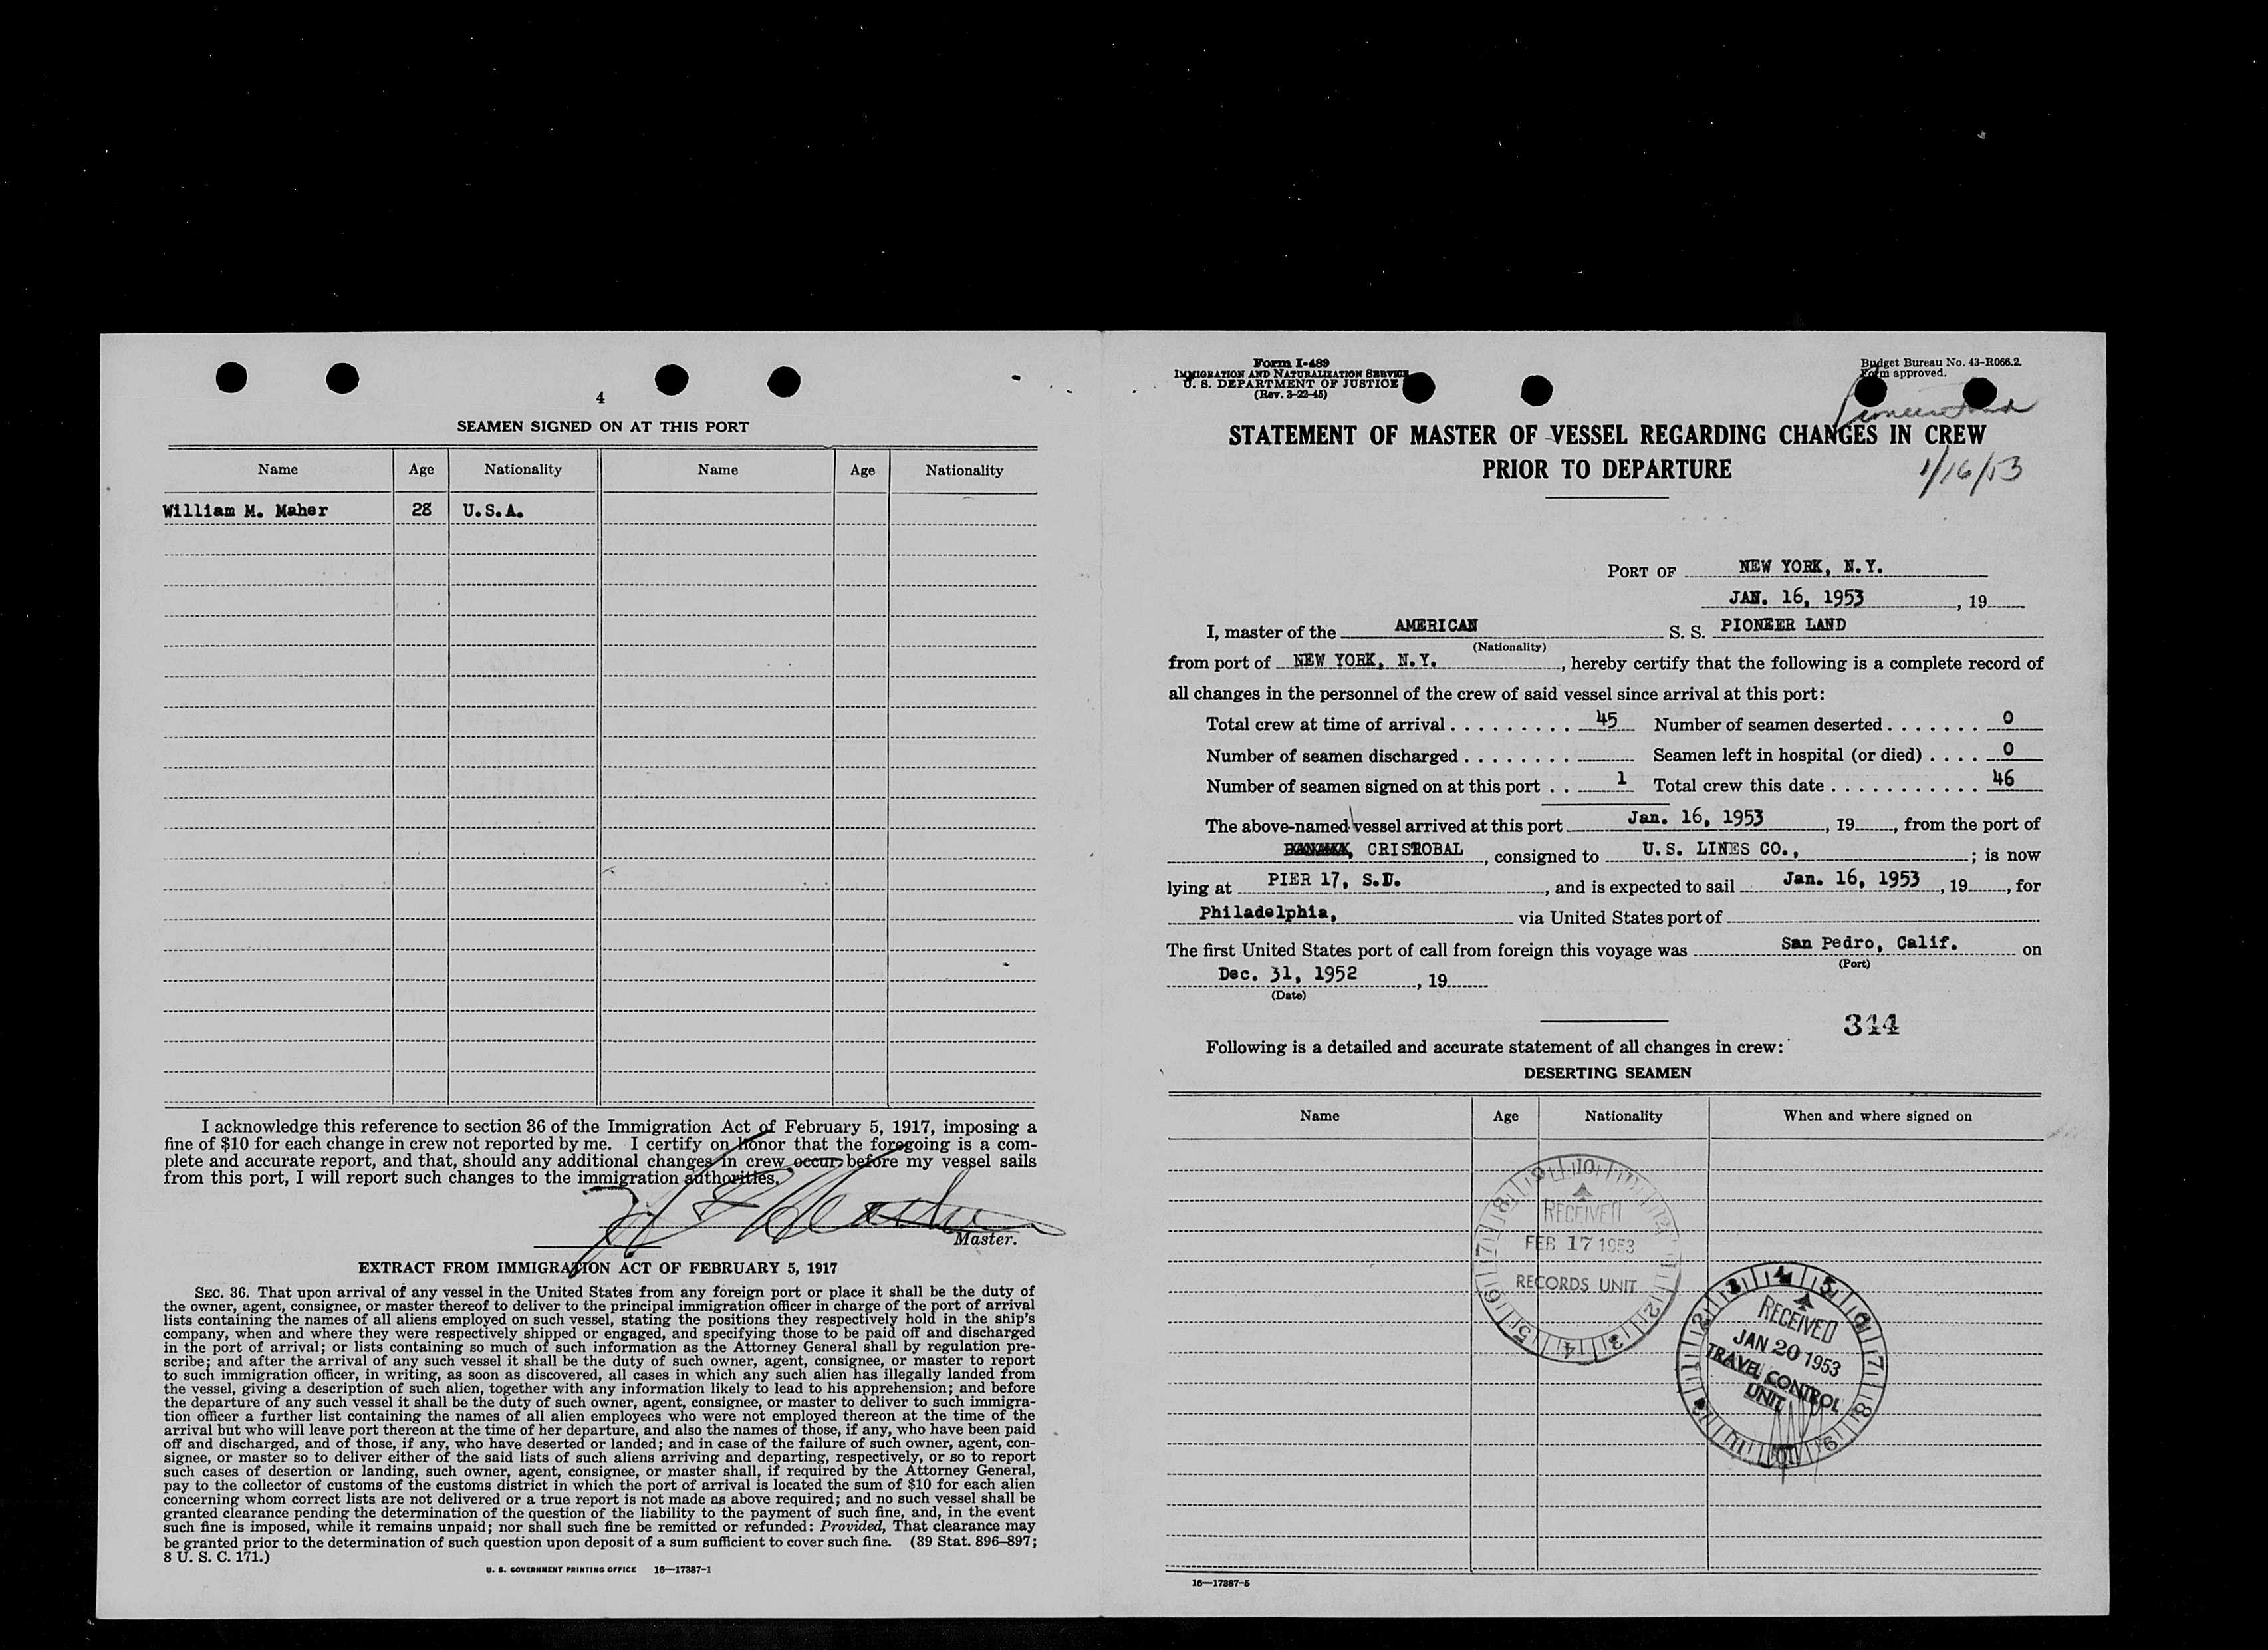 4
SEAMEN SIGNED ON AT THIS PORT
Name Age Nationality Name Age Nationality
William M. Maher 28 U.S.A.
I acknowledge this reference to section 36 of the Immigration Act of February 5, 1917, imposing a
fine of $10 for each change in crew not reported by me. I certify on honor that the foregoing is a com-
plete and accurate report, and that, should any additional changes in crew occur before my vessel sails
from this port, I will report such changes to the immigration authorities.
Master.
EXTRACT FROM IMMIGRATION ACT OF FEBRUARY 5, 1917
SEC. 36. That upon arrival of any vessel in the United States from any foreign port or place it shall be the duty of
the owner, agent, consignee, or master thereof to deliver to the principal immigration officer in charge of the port of arrival
lists containing the names of all aliens employed on such vessel, stating the positions they respectively hold in the ship's
company, when and where they were respectively shipped or engaged, and specifying those to be paid off and discharged
in the port of arrival; or lists containing so much of such information as the Attorney General shall by regulation pre-
scribe; and after the arrival of any such vessel it shall be the duty of such owner, agent, consignee, or master to report
to such immigration officer, in writing, as soon as discovered, all cases in which any such alien has illegally landed from
the vessel, giving a description of such alien, together with any information likely to lead to his apprehension; and before
the departure of any such vessel it shall be the duty of such owner, agent, consignee, or master to deliver to such immigra-
tion officer a further list containing the names of all alien employees who were not employed thereon at the time of the
arrival but who will leave port thereon at the time of her departure, and also the names of those, if any, who have been paid
off and discharged, and of those, if any, who have deserted or landed; and in case of the failure of such owner, agent, con-
signee, or master so to deliver either of the said lists of such aliens arriving and departing, respectively, or so to report
such cases of desertion or landing, such owner, agent, consignee, or master shall, if required by the Attorney General,
pay to the collector of customs of the customs district in which the port of arrival is located the sum of $10 for each alien
concerning whom correct lists are not delivered or a true report is not made as above required; and no such vessel shall be
granted clearance pending the determination of the question of the liability to the payment of such fine, and, in the event
such fine is imposed, while it remains unpaid; nor shall such fine be remitted or refunded: Provided, That clearance may
be granted prior to the determination of such question upon deposit of a sum sufficient to cover such fine. (39 Stat. 896–897;
8 U. S. C. 171.)
U. S. GOVERNMENT PRINTING OFFICE 16—17387-1
Form I-489
IMMIGRATION AND NATURALIZATION SERVICE
U. S. DEPARTMENT OF JUSTICE
(Rev. 3-22-45)
Budget Bureau No. 43-R066.2.
Form approved.
Pioneer Land
STATEMENT OF MASTER OF VESSEL REGARDING CHANGES IN CREW
PRIOR TO DEPARTURE
1/16/53
PORT OF NEW YORK, N.Y.
JAN. 16, 1953, 19
I, master of the AMERICAN S. S. PIONEER LAND
(Nationality)
from port of NEW YORK, N.Y., hereby certify that the following is a complete record of
all changes in the personnel of the crew of said vessel since arrival at this port:
Total crew at time of arrival 45 Number of seamen deserted 0
Number of seamen discharged Seamen left in hospital (or died) 0
Number of seamen signed on at this port 1 Total crew this date 46
The above-named vessel arrived at this port Jan. 16, 1953, 19, from the port of
CRISTOBAL, consigned to U.S. LINES CO., ; is now
lying at PIER 17, S.I., and is expected to sail Jan. 16, 1953, 19, for
Philadelphia, via United States port of
The first United States port of call from foreign this voyage was San Pedro, Calif. on
(Port)
Dec. 31, 1952, 19
(Date)
344
Following is a detailed and accurate statement of all changes in crew:
DESERTING SEAMEN
Name Age Nationality When and where signed on
RECEIVED
FEB 17 1953
RECORDS UNIT
RECEIVED
JAN 20 1953
TRAVEL CONTROL
UNIT
16—17387-5